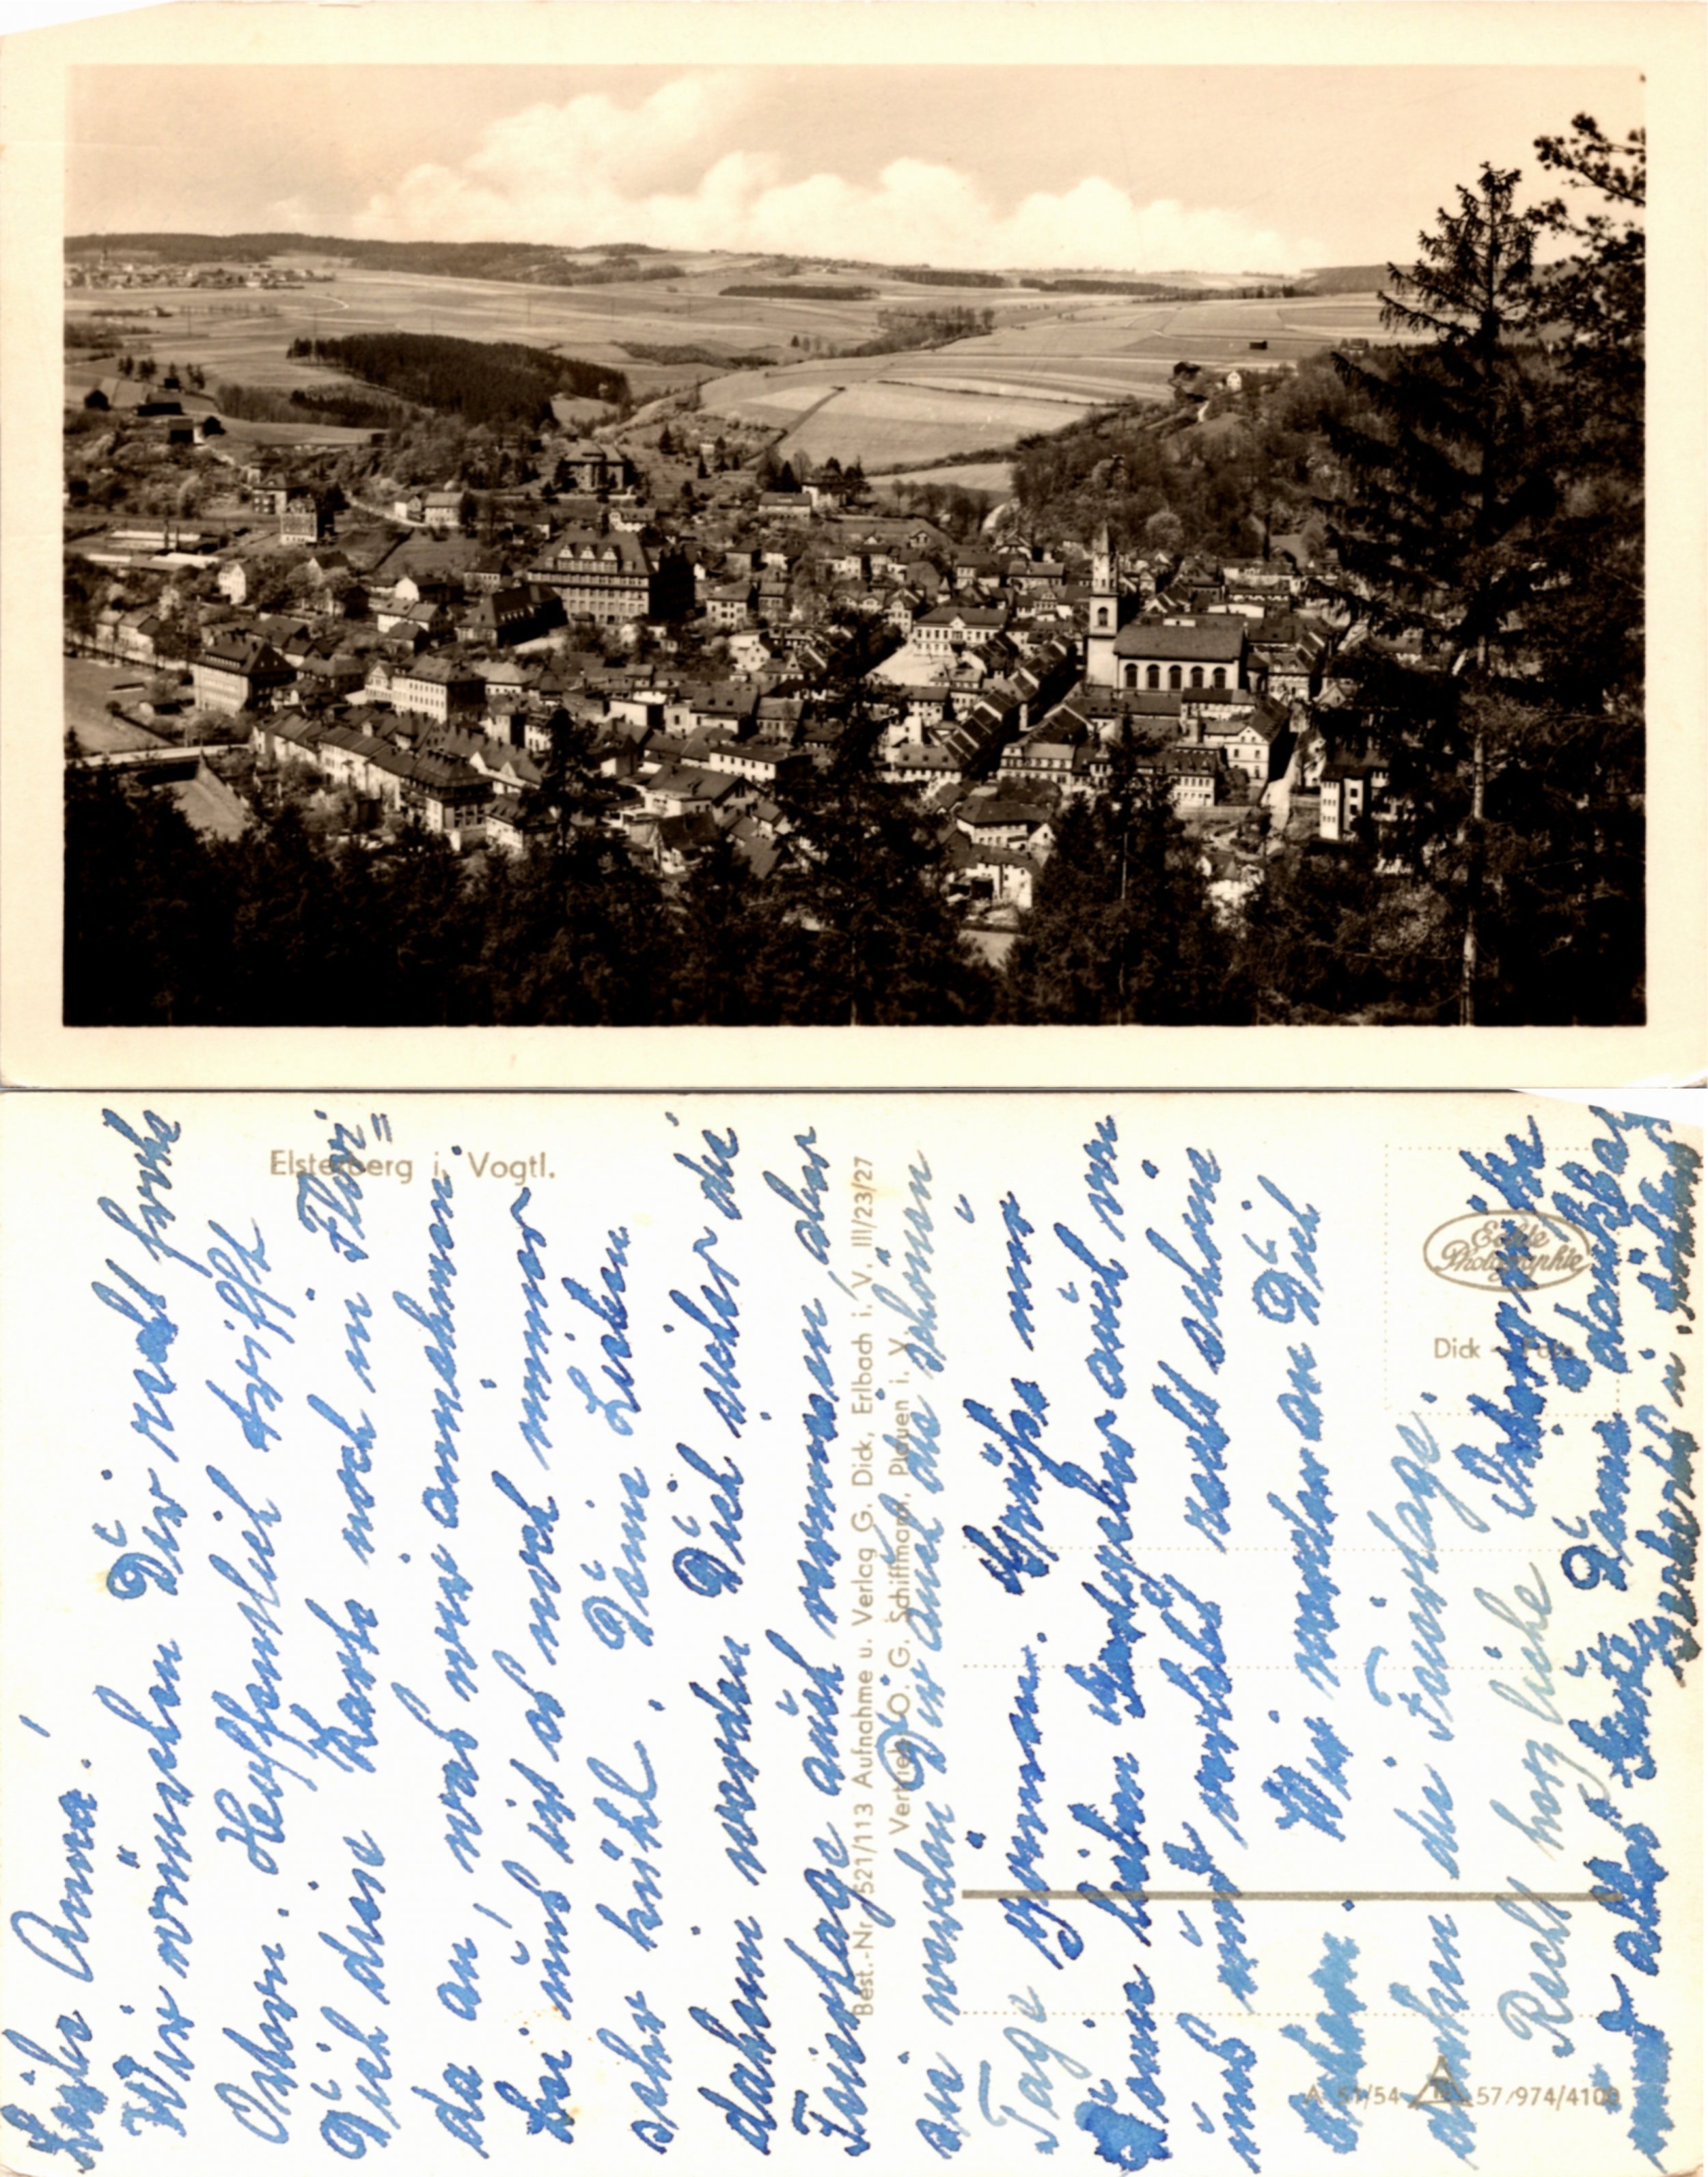 Elsterberg i. Vogtl.
Liebe Anna!
Wir wünschen Dir recht frohe
Ostern. Hoffentlich trifft
Dich diese Karte noch in
da an, was wir annehmen.
Bei uns ist es noch immer
sehr kühl. Deine Lieben
daheim werden Dich sicher die
Feiertage auch vermissen, aber
sie werden Dir auch die schönen
Tage gönnen. Grüße nur
Deine lieben Gastgeber auch von
uns und verlebt recht schöne
Ostern. Wir werden an Dich
denken die Feiertage.
Recht herzliche Ostergrüße
und alles Gute Deine dankbar
Best.-Nr. 521/113 Aufnahme u. Verlag G. Dick, Erlbach i. V. III/23/27
Vertrieb: O. G. Schiffmann, Plauen i. V.
Echte
Photographie
Dick - Foto
A 51/54 57/974/4100